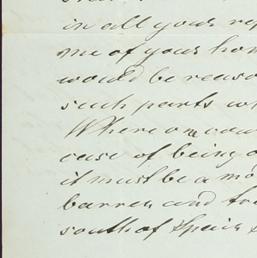 in all your rep
me of your hom
would be reaso
such parts wh
Where one cou
case of being a
it must be a mo
barren and tr
south of Spain &